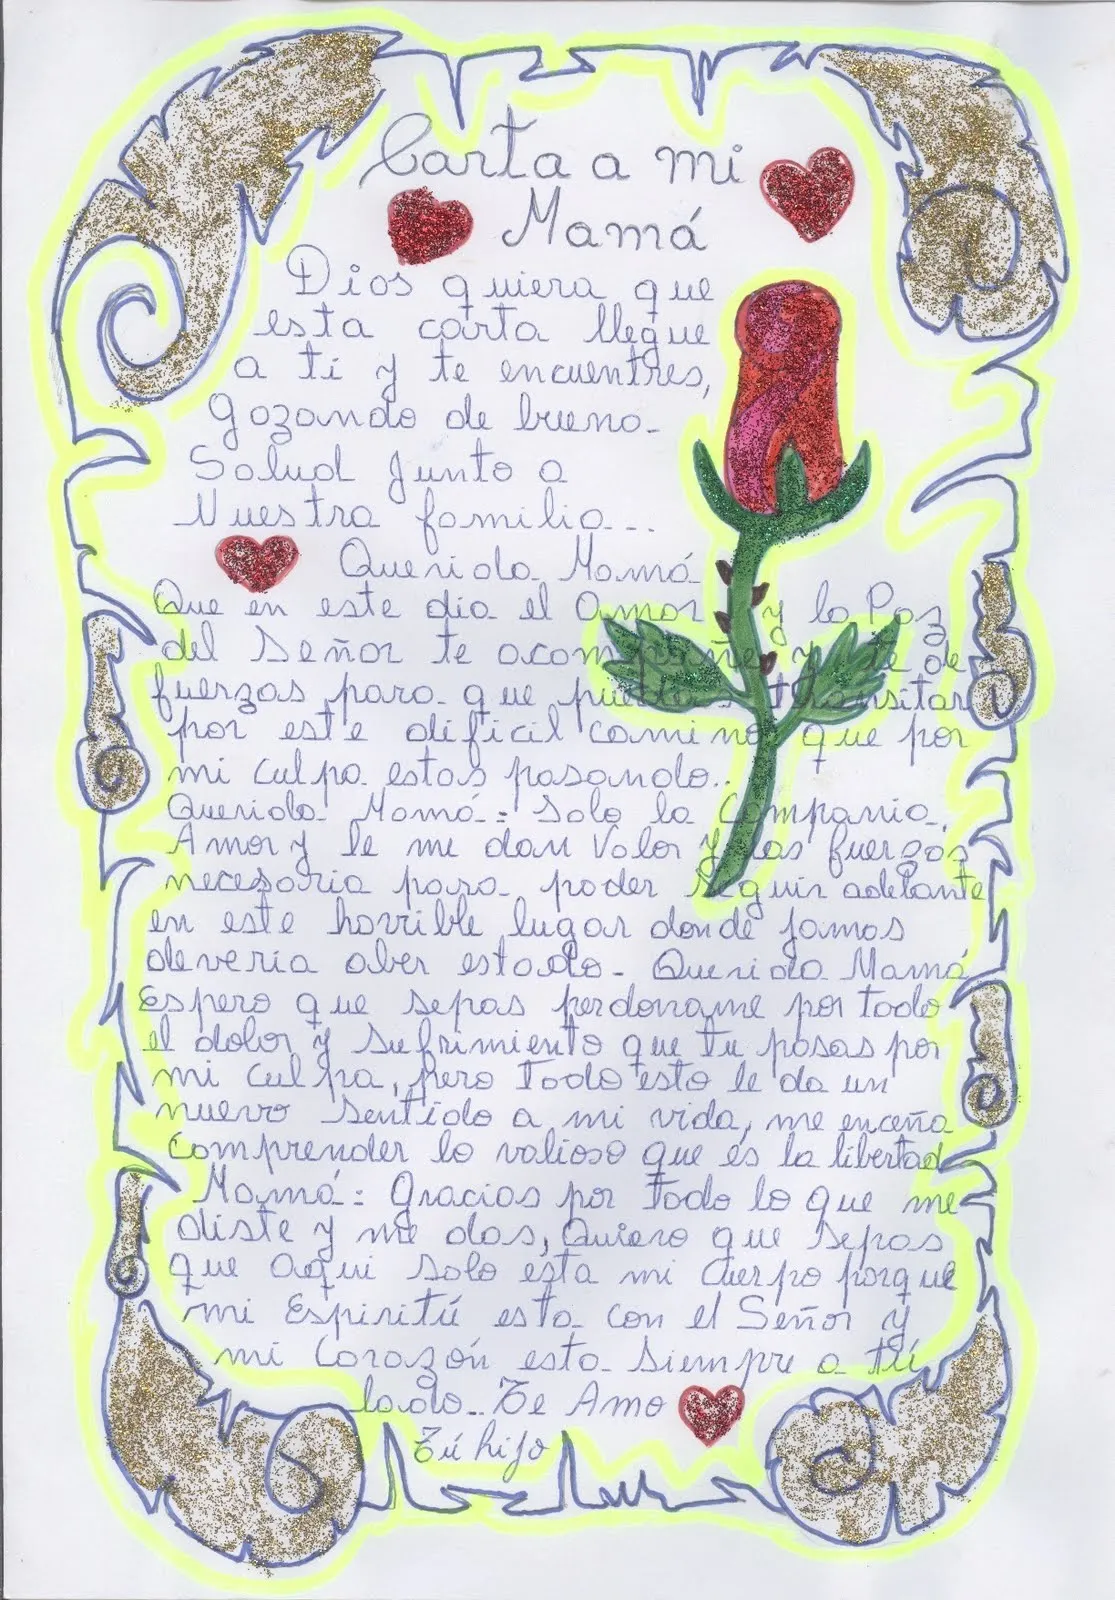 Carta a mi
Mamá
Dios quiera que
esta carta llegue
a ti y te encuentres,
gozando de buena
Salud junto a
Nuestra familia...
Querida Mamá
Que en este dia el Amor y la Paz
del Señor te acompañe y te de
fuerzas para que puedas transitar
por este dificil camino que por
mi culpa estas pasando..
Querida Mamá: Solo la Compania,
Amor y fe me dan Valor y las fuerzas
necesaria para poder seguir adelante
en este horrible lugar donde jamas
deveria aber estado- Querida Mamá
Espero que sepas perdoname por todo
el dolor y sufrimiento que tu pasas por
mi culpa, pero todo esto le da un
nuevo sentido a mi vida, me enceña
comprender lo valioso que es la libertad
Mamá: Gracias por todo lo que me
diste y me das, Quiero que sepas
que aqui solo esta mi cuerpo porque
mi Espiritú esta con el Señor y
mi Corazón esta siempre a tú
lado.. Te Amo
Tú hijo